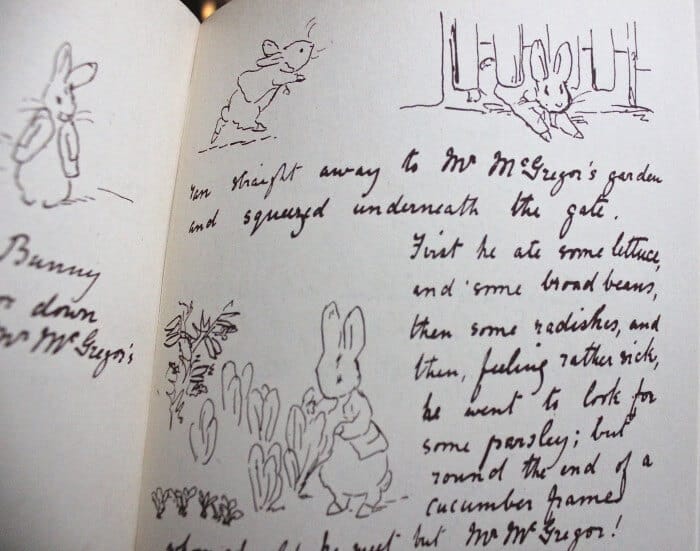 Bunny
down
Mr McGregor's
ran straight away to Mr McGregor's garden
and squeezed underneath the gate.
First he ate some lettuce,
and some broad beans,
then some radishes, and
then, feeling rather sick,
he went to look for
some parsley; but
round the end of a
cucumber frame
meet but Mr McGregor!